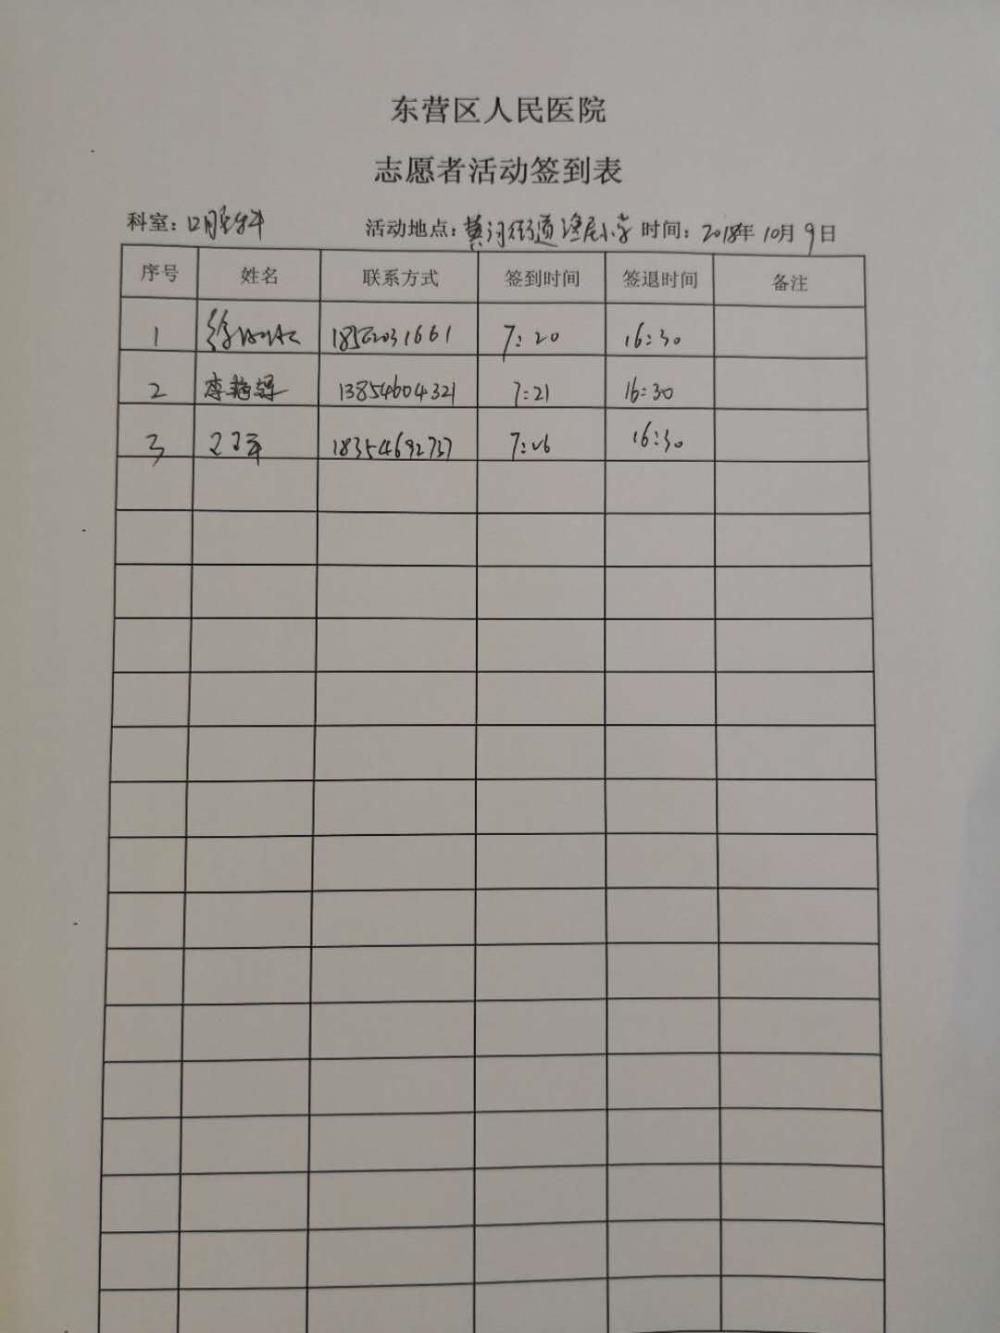 东营区人民医院
志愿者活动签到表
科室：口腔科 活动地点：黄河街道小学 时间：2018年10月9日
序号 姓名 联系方式 签到时间 签退时间 备注
1 徐 18562031661 7:20 16:30
2 李 13854604321 7:21 16:30
3 18354692737 7:26 16:30